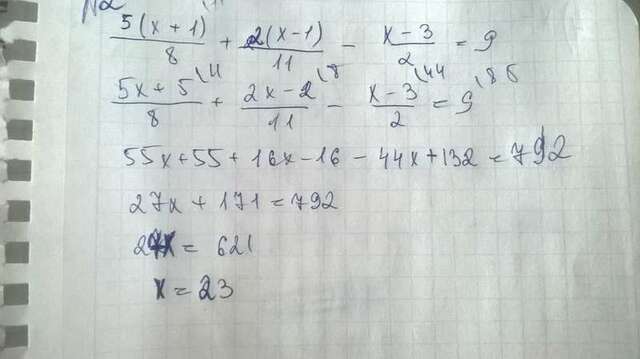 №2
5(x + 1)/8 + 2(x - 1)/11 - x - 3/2 = 9
5x + 5/8 + 2x - 2/11 \8 - x - 3/2 \44 = 9
55x + 55 + 16x - 16 - 44x + 132 = 792
27x + 171 = 792
27x = 621
x = 23